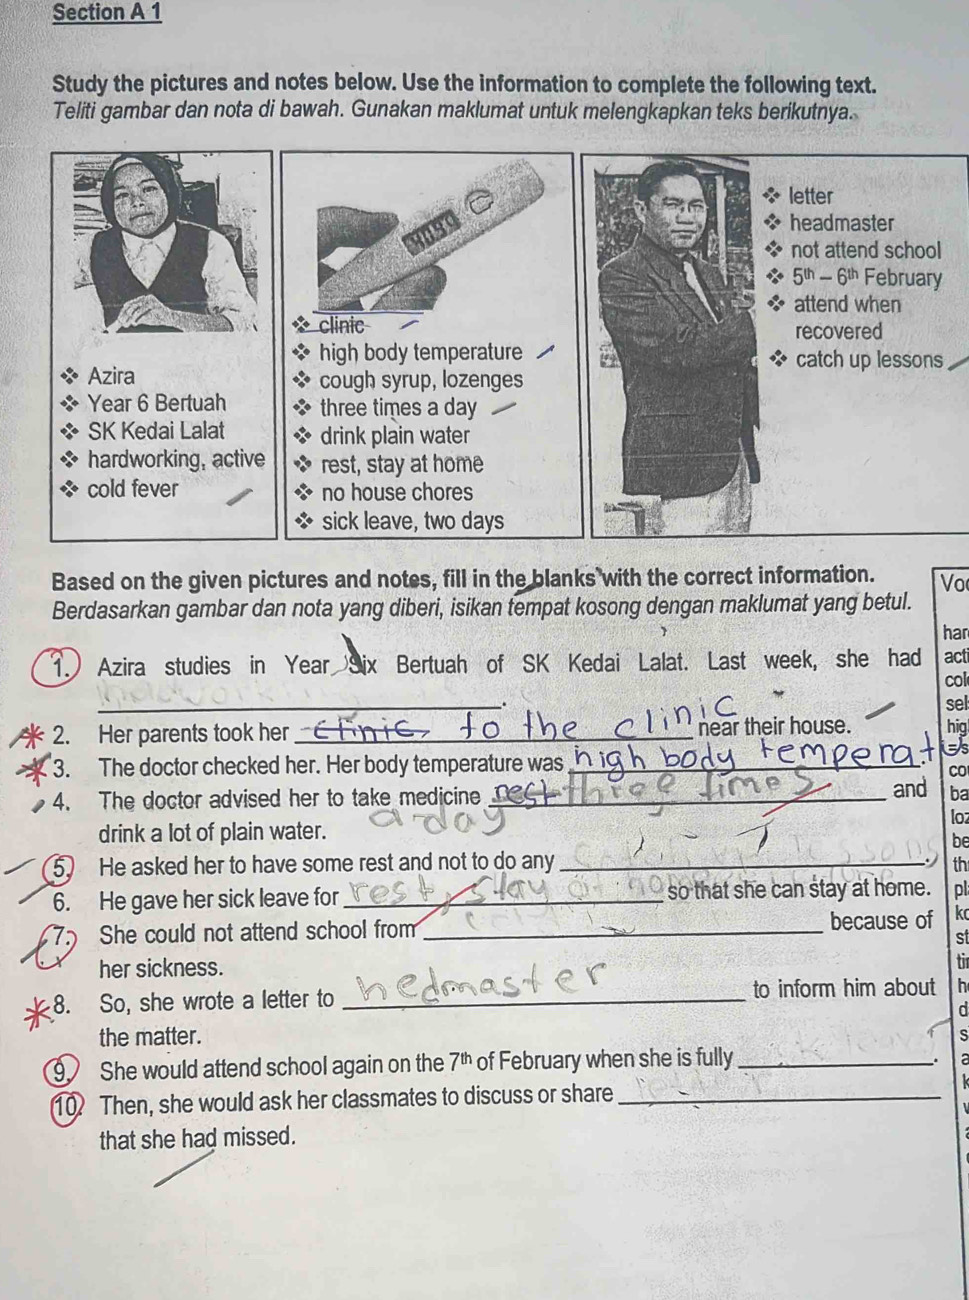 Section A 1
Study the pictures and notes below. Use the information to complete the following text.
Teliti gambar dan nota di bawah. Gunakan maklumat untuk melengkapkan teks berikutnya.
❖ Azira
❖ Year 6 Bertuah
❖ SK Kedai Lalat
❖ hardworking, active
❖ cold fever
❖ clinic
❖ high body temperature
❖ cough syrup, lozenges
❖ three times a day
❖ drink plain water
❖ rest, stay at home
❖ no house chores
❖ sick leave, two days
❖ letter
❖ headmaster
❖ not attend school
❖ 5th – 6th February
❖ attend when
recovered
❖ catch up lessons
Based on the given pictures and notes, fill in the blanks with the correct information.
Berdasarkan gambar dan nota yang diberi, isikan tempat kosong dengan maklumat yang betul.
1. Azira studies in Year Six Bertuah of SK Kedai Lalat. Last week, she had
hardworking
2. Her parents took her clinic to the clinic near their house.
3. The doctor checked her. Her body temperature was high body temperat
4. The doctor advised her to take medicine rest three times and
a day
drink a lot of plain water.
5. He asked her to have some rest and not to do any catch up lessons.
6. He gave her sick leave for rest, stay at home so that she can stay at home.
7. She could not attend school from because of
her sickness.
8. So, she wrote a letter to hedmaster to inform him about
the matter.
9. She would attend school again on the 7th of February when she is fully leave.
10. Then, she would ask her classmates to discuss or share letter
that she had missed.
Voc
har
acti
col
sel
hig
co
ba
loz
be
th
pl
kc
st
ti
h
d
s
a
k